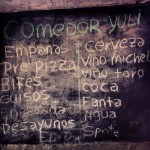 COMEDOR YULI
EMPANAS
PRE PIZZA
BIFES
GUISOS
DESAYUNOS
CERVEZA
VINO MICHEL
VINO TORO
COCA
FANTA
AGUA